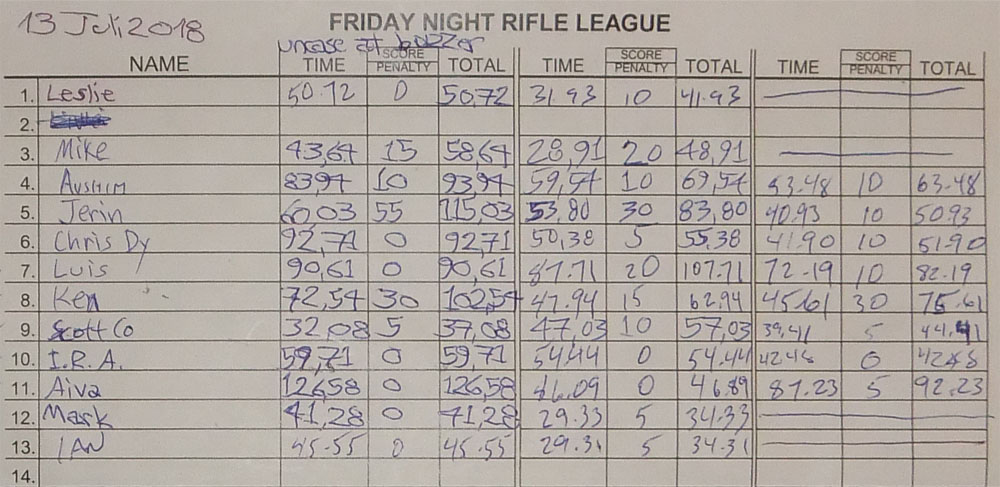 13 Juli 2018
FRIDAY NIGHT RIFLE LEAGUE
uncase at buzzer
NAME TIME SCORE PENALTY TOTAL TIME SCORE PENALTY TOTAL TIME SCORE PENALTY TOTAL
1. Leslie 50.72 0 50,72 31.93 10 41.93
2.
3. Mike 43,64 15 58,64 28,91 20 48,91
4. Avshim 83,94 10 93,94 59,54 10 69,54 53.48 10 63.48
5. Jerin 60,03 55 115,03 53,80 30 83,80 40.93 10 50.93
6. Chris Dy 92,71 0 92,71 50,38 5 55.38 41.90 10 51.90
7. Luis 90,61 0 90,61 87.71 20 107.71 72.19 10 82.19
8. Ken 72,54 30 102,54 47.94 15 62.94 45.61 30 75.61
9. Scott Co 32,08 5 37,08 47,03 10 57,03 39,41 5 44.41
10. I.R.A. 59,71 0 59,71 54.44 0 54.44 42.48 0 42.48
11. Aiva 126,58 0 126,58 46.09 0 87.23 5 92.23
12. Mark 41,28 0 41,28 29.33 5 34.33
13. IAN 45.55 0 45.55 29.31 5 34.31
14.